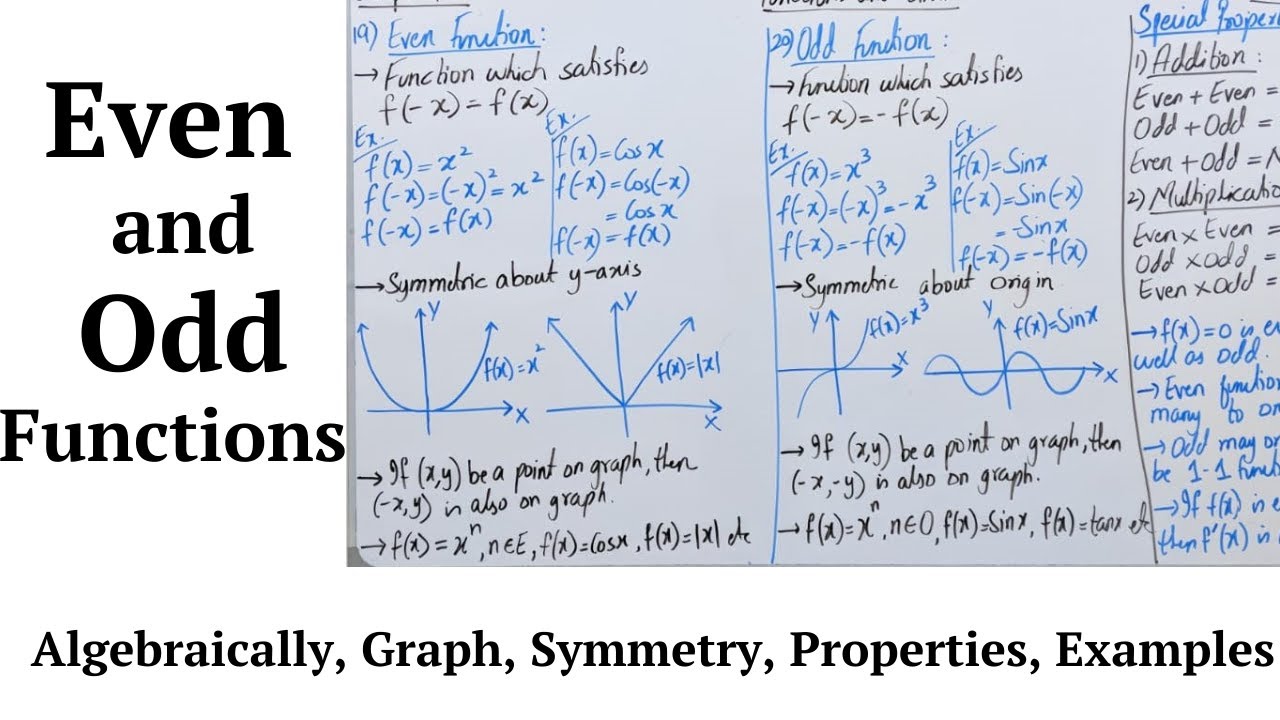 Even
and
Odd
Functions
19) Even Function:
→ Function which satisfies
f(-x) = f(x)
Ex.
f(x) = x²
f(-x) = (-x)² = x²
f(-x) = f(x)
Ex.
f(x) = Cos x
f(-x) = Cos(-x)
= Cos x
f(-x) = f(x)
→ Symmetric about y-axis
Y
f(x) = x²
X
Y
f(x) = |x|
X
→ If (x,y) be a point on graph, then
(-x,y) is also on graph.
→ f(x) = xⁿ, n∈E, f(x) = Cosx, f(x) = |x| etc
20) Odd Function:
→ Function which satisfies
f(-x) = -f(x)
Ex.
f(x) = x³
f(-x) = (-x)³ = -x³
f(-x) = -f(x)
Ex.
f(x) = Sinx
f(-x) = Sin(-x)
= -Sinx
f(-x) = -f(x)
→ Symmetric about origin
Y
f(x) = x³
X
Y
f(x) = Sinx
X
→ If (x,y) be a point on graph, then
(-x,-y) is also on graph.
→ f(x) = xⁿ, n∈O, f(x) = Sinx, f(x) = tanx et
Special
1) Addition:
Even + Even =
Odd + Odd =
Even + Odd =
2)
Even × Even =
Odd × Odd =
Even × Odd =
→ f(x) = 0 is
well as odd.
→ Even
many to
→ Odd may
be 1-1
→ If f(x) is
then f'(x) is
Algebraically, Graph, Symmetry, Properties, Examples